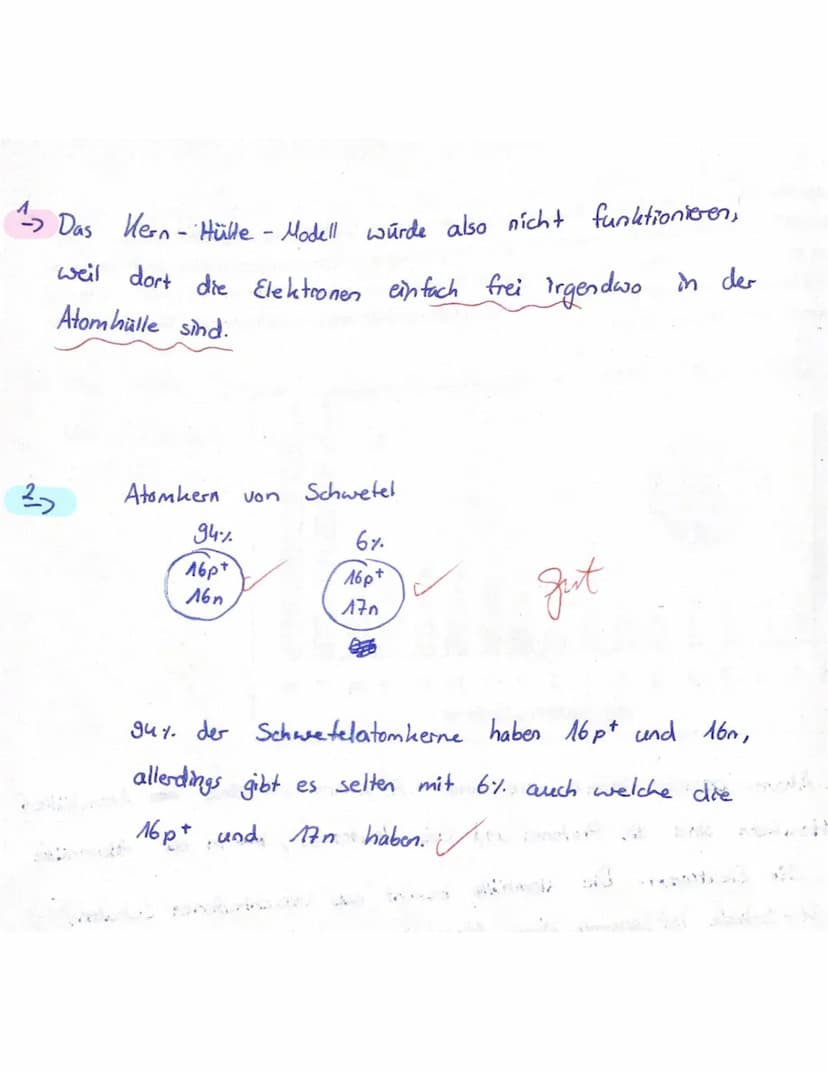 1→ Das Kern-Hülle-Modell würde also nicht funktionieren,
weil dort die Elektronen einfach frei irgendwo in der
Atomhülle sind.
2→ Atomkern von Schwefel
94% 6%
16p⁺ 16p⁺
16n 17n
gut
94% der Schwefelatomkerne haben 16p⁺ und 16n,
allerdings gibt es selten mit 6% auch welche die
16p⁺ und 17n haben.